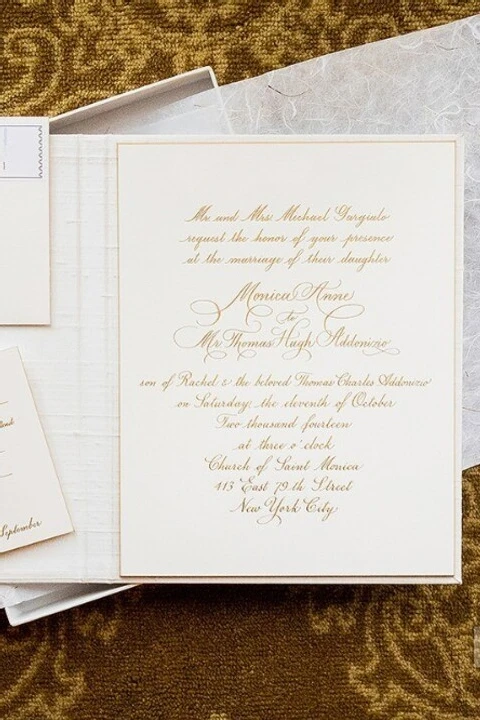 Mr. and Mrs. Michael Gargiulo
request the honor of your presence
at the marriage of their daughter
Monica Anne
to
Mr. Thomas Hugh Addonizio
son of Rachel & the beloved Thomas Charles Addonizio
on Saturday, the eleventh of October
Two thousand fourteen
at three o'clock
Church of Saint Monica
413 East 79th Street
New York City
September